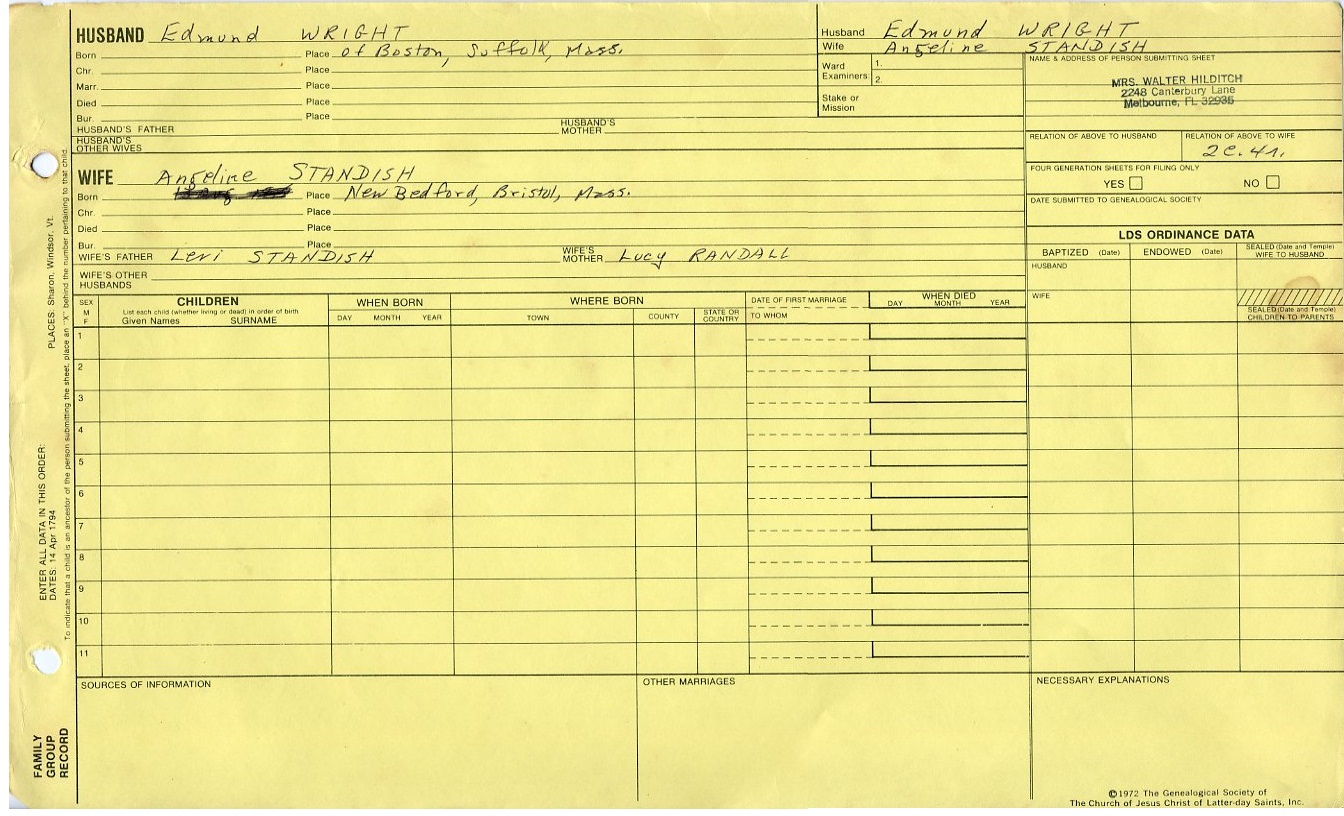 HUSBAND Edmund WRIGHT
Born Place of Boston, Suffolk, Mass.
Chr. Place
Marr. Place
Died Place
Bur. Place
HUSBAND'S FATHER HUSBAND'S MOTHER
HUSBAND'S OTHER WIVES
Husband Edmund WRIGHT
Wife Angeline STANDISH
Ward Examiners 1.
2.
Stake or Mission
NAME & ADDRESS OF PERSON SUBMITTING SHEET
MRS. WALTER HILDITCH
2248 Canterbury Lane
Melbourne, FL 32935
RELATION OF ABOVE TO HUSBAND RELATION OF ABOVE TO WIFE
2c. 4r.
FOUR GENERATION SHEETS FOR FILING ONLY
YES NO
DATE SUBMITTED TO GENEALOGICAL SOCIETY
WIFE Angeline STANDISH
Born Place New Bedford, Bristol, Mass.
Chr. Place
Died Place
Bur. Place
WIFE'S FATHER Levi STANDISH WIFE'S MOTHER Lucy RANDALL
WIFE'S OTHER HUSBANDS
LDS ORDINANCE DATA
BAPTIZED (Date) ENDOWED (Date) SEALED (Date and Temple) WIFE TO HUSBAND
HUSBAND
WIFE
SEALED (Date and Temple) CHILDREN TO PARENTS
SEX M F
CHILDREN
List each child (whether living or dead) in order of birth
Given Names SURNAME
WHEN BORN
DAY MONTH YEAR
WHERE BORN
TOWN COUNTY STATE OR COUNTRY
DATE OF FIRST MARRIAGE
TO WHOM
WHEN DIED
DAY MONTH YEAR
1
2
3
4
5
6
7
8
9
10
11
SOURCES OF INFORMATION OTHER MARRIAGES NECESSARY EXPLANATIONS
©1972 The Genealogical Society of
The Church of Jesus Christ of Latter-day Saints, Inc.
FAMILY GROUP RECORD
ENTER ALL DATA IN THIS ORDER:
DATES: 14 Apr 1794 PLACES: Sharon, Windsor, Vt.
To indicate that a child is an ancestor of the person submitting the sheet, place an "X" behind the number pertaining to that child.